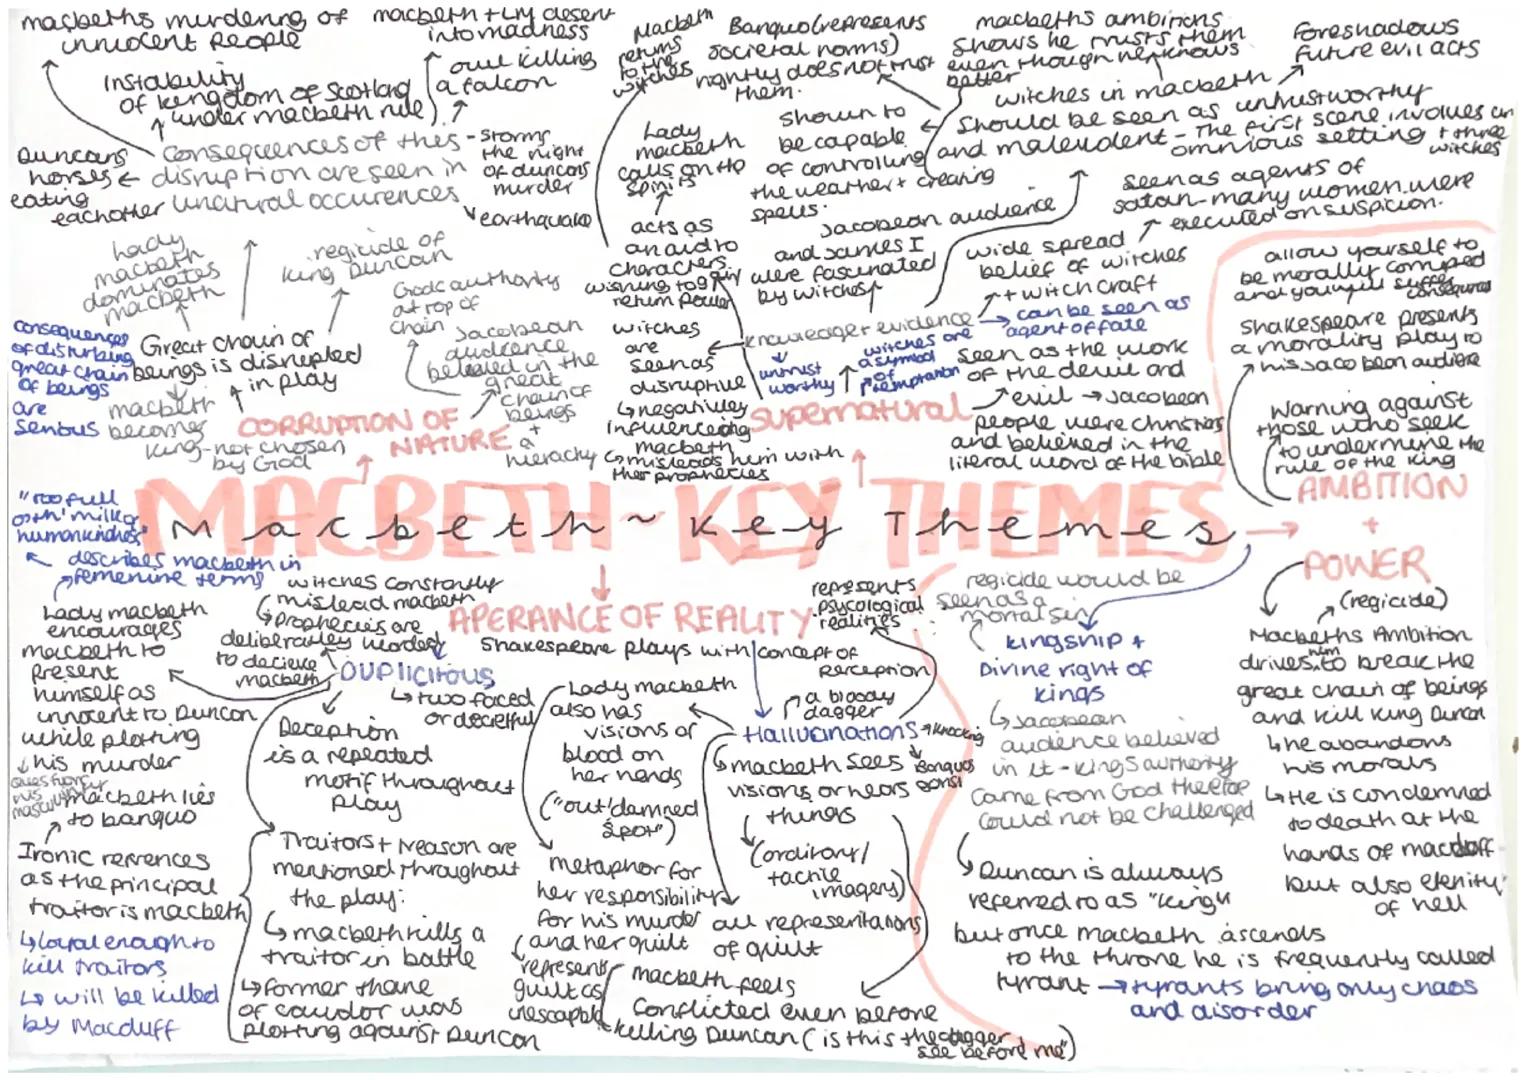 macbeths murdering of
innocent people
macbeth + LM desent
into madness
owl killing
a falcon
Instability
of kingdom of scotland
under macbeth rule
Duncans
horses
eating
eachother
consequences of this
disruption are seen in
unatural occurences
- storms
the night
of duncans
murder
earthquake
Macbeth
returns
to the
witches
Banquo (represents
societal norms)
rightly does not trust
them.
macbeths ambitions
shows he trusts them
even though he knows
better
Foreshadows
future evil acts
witches in macbeth
should be seen as untrustworthy
and malevolent - The first scene involves an
omnious setting + three
witches
Lady
macbeth
calls on the
spirits
shown to
be capable
of controlling
the weather + creating
spells.
acts as
an aid to
characters
wishing to gain
return power
Jacobean audience
and James I
were fascinated
by witches
seen as agents of
satan - many women were
executed on suspicion.
wide spread
belief of witches
+ witch craft
Lady
macbeth
dominates
macbeth
regicide of
King Duncan
Gods authority
at top of
chain
Jacobean
audience
believed in the
great
chain of
beings
+
a
hierachy
consequences
of disturbing
great chain
of beings
are
serious
Great chain of
beings is disrupted
in play
macbeth
becomes
King - not chosen
by God
CORRUPTION OF
NATURE
witches
are
seen as
disruptive
↳ negatively
influenceding
macbeth
↳ misleads him with
ther prophecies
knowledge + evidence
untrust
worthy
witches are
a symbol
of
temptation
can be seen as
agent of fate
SUPERNATURAL
seen as the work
of the devil and
evil → Jacobean
people were christians
and believed in the
literal word of the bible
allow yourself to
be morally corruped
and you will suffer
consequences
Shakespeare presents
a morality play to
his Jacobean audience
Warning against
those who seek
to undermine the
rule of the King
AMBITION
+
POWER
MACBETH ~ KEY THEMES
Macbeth ~ Key Themes
"too full
o'th' milk of
human kindness"
describes macbeth in
femenine terms
Lady macbeth
encourages
macbeth to
present
himself as
innocent to Duncan
while plotting
his murder
questions
his
masculinity
macbeth lies
to banquo
Ironic references
as the principal
traitor is macbeth
↳ loyal enough to
kill traitors
↳ will be killed
by Macduff
witches constantly
mislead macbeth
prophecies are
deliberatley worded
to decieve
macbeth
APERANCE OF REALITY
Shakespeare plays with concept of
perception
DUPLICITOUS
↳ two faced
or deceitful
Deception
is a repeated
motif throughout
play
Traitors + treason are
mentioned throughout
the play:
↳ macbeth kills a
traitor in battle
↳ Former thane
of cawdor was
plotting against Duncan
Lady macbeth
also has
visions of
blood on
her hands
("out damned
spot")
metaphor for
her responsibility
for his murder
and her guilt
represents
guilt as
inescapable
represents
psycological
realities
a bloody
dagger
Hallucinations → knocking
Banquos
macbeth sees
visions or hears
things
(orditory/
tactile
imagery)
all representations
of guilt
macbeth feels
conflicted even before
killing Duncan ( is this the dagger I
see before me")
regicide would be
seen as a
mortal sin
Kingship +
Divine right of
Kings
↳ Jacobean
audience believed
in it - kings authority
came from God therefore
could not be challenged
↳ Duncan is always
referred to as "King"
but once macbeth ascends
to the throne he is frequently called
tyrant → tyrants bring only chaos
and disorder
(regicide)
Macbeths Ambition
drives him to break the
great chain of beings
and kill King Duncan
↳ he abandons
his morals
↳ He is condemned
to death at the
hands of macduff
but also eternity
of hell